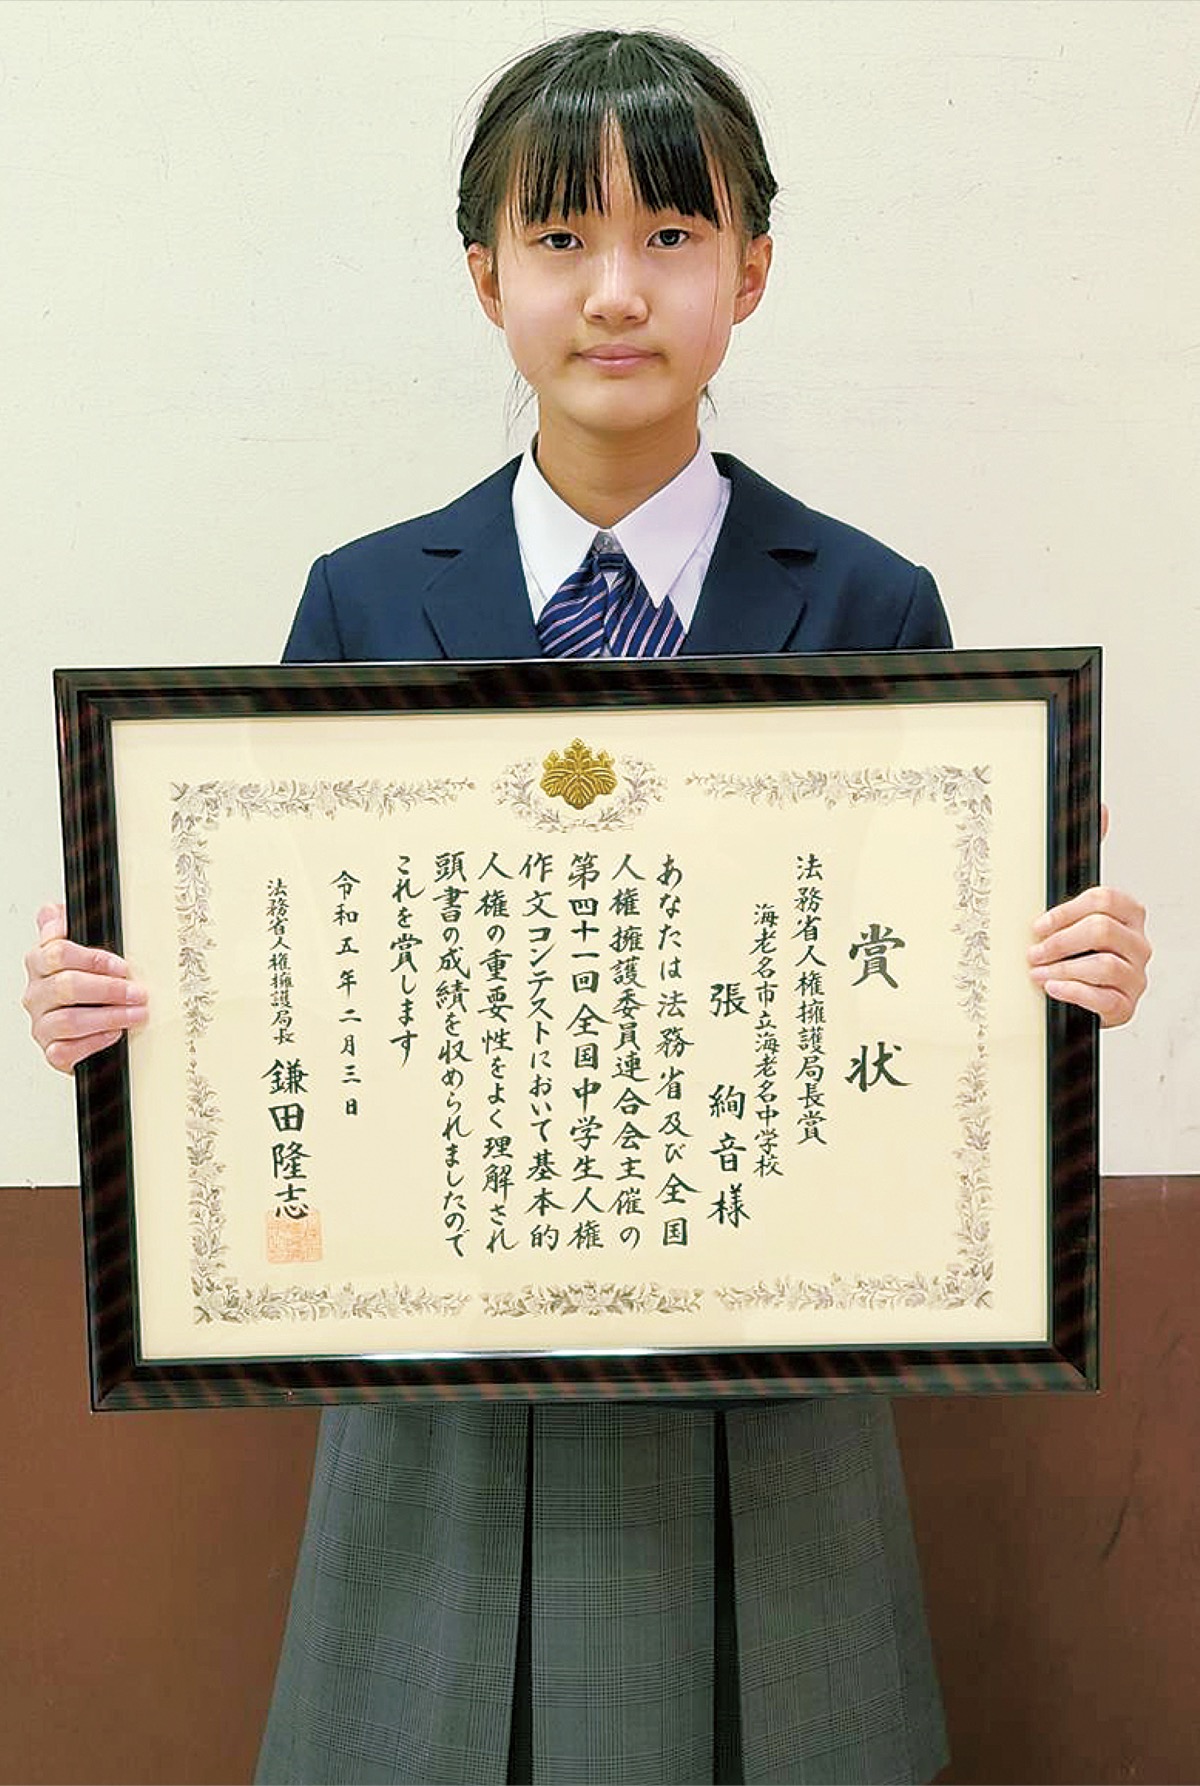 賞状
法務省人権擁護局長賞
海老名市立海老名中学校
張絢音様
あなたは法務省及び全国
人権擁護委員連合会主催の
第四十一回全国中学生人権
作文コンテストにおいて基本的
人権の重要性をよく理解され
頭書の成績を収められましたので
これを賞します
令和五年二月三日
法務省人権擁護局長 鎌田隆志